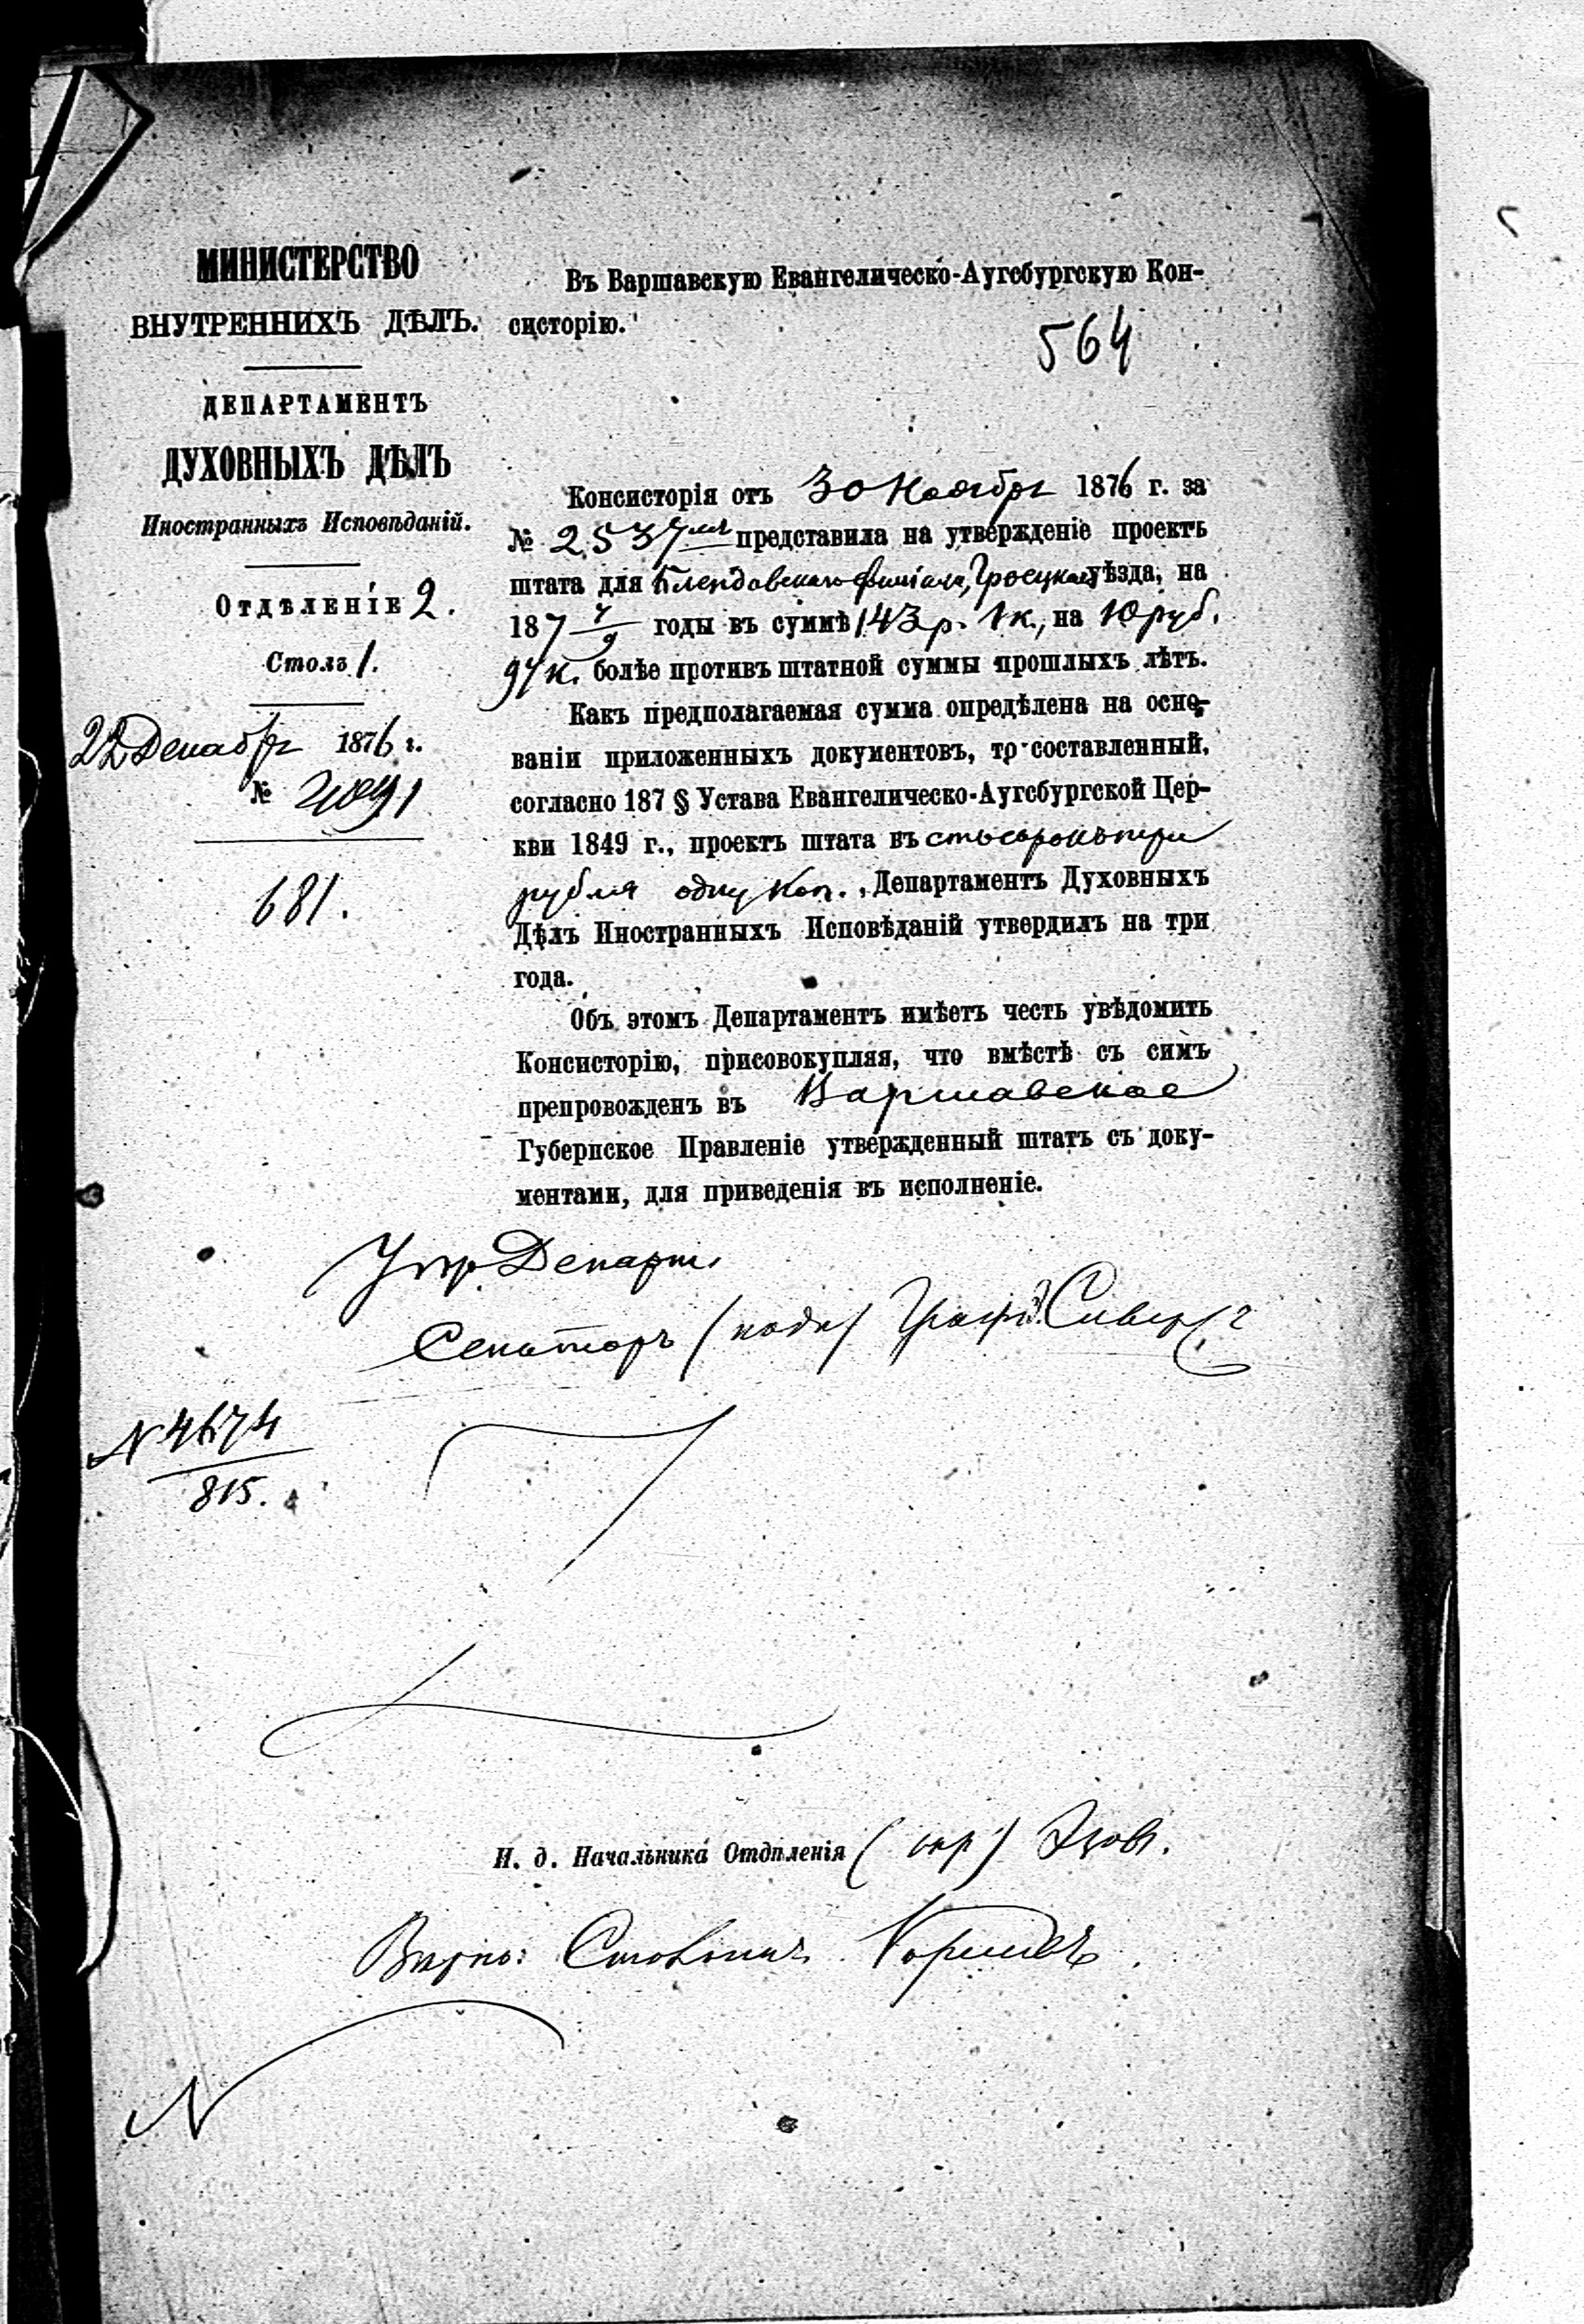 МИНИСТЕРСТВО
ВНУТРЕННИХЪ ДѢЛЪ.
ДЕПАРТАМЕНТЪ
ДУХОВНЫХЪ ДѢЛЪ
Иностранныхъ Исповѣданій.
Отдѣленіе 2.
Столъ 1.
22 Декабря 1876 г.
№
681.
Въ Варшавскую Евангелическо-Аугсбургскую Кон-
систорію.
564
Консисторія отъ 30 Ноября 1876 г. за
№ 2537 представила на утвержденіе проектъ
штата для Блендовскаго филіала, Гроецкаго уѣзда, на
187 7/9 годы въ суммѣ 143 р. 1 к., на 10 руб.
97 к. болѣе противъ штатной суммы прошлыхъ лѣтъ.
Какъ предполагаемая сумма опредѣлена на осно-
ваніи приложенныхъ документовъ, то составленный,
согласно 187 § Устава Евангелическо-Аугсбургской Цер-
кви 1849 г., проектъ штата въ сто сорокъ три
рубля одну коп., Департаментъ Духовныхъ
Дѣлъ Иностранныхъ Исповѣданій утвердилъ на три
года.
Объ этомъ Департаментъ имѣетъ честь увѣдомить
Консисторію, присовокупляя, что вмѣстѣ съ симъ
препровожденъ въ Варшавское
Губернское Правленіе утвержденный штатъ съ доку-
ментами, для приведенія въ исполненіе.
Упр. Департ.
Сенаторъ (подп) Графъ Сиверсъ
N 4674
815.
И. д. Начальника Отдѣленія (скр)
Вѣрно: